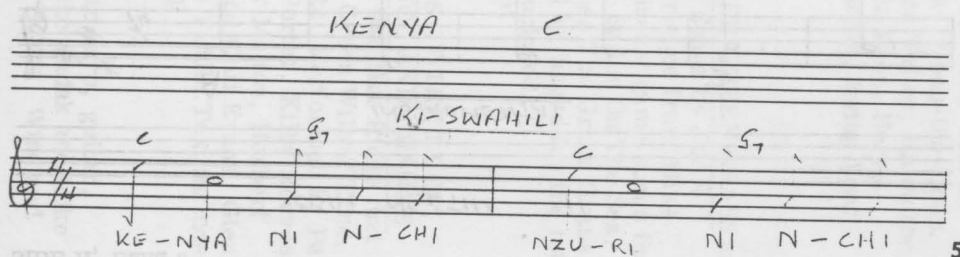 KENYA C.
KI-SWAHILI
C G7 C G7
4/4
KE-NYA NI N-CHI NZU-RI NI N-CHI
5